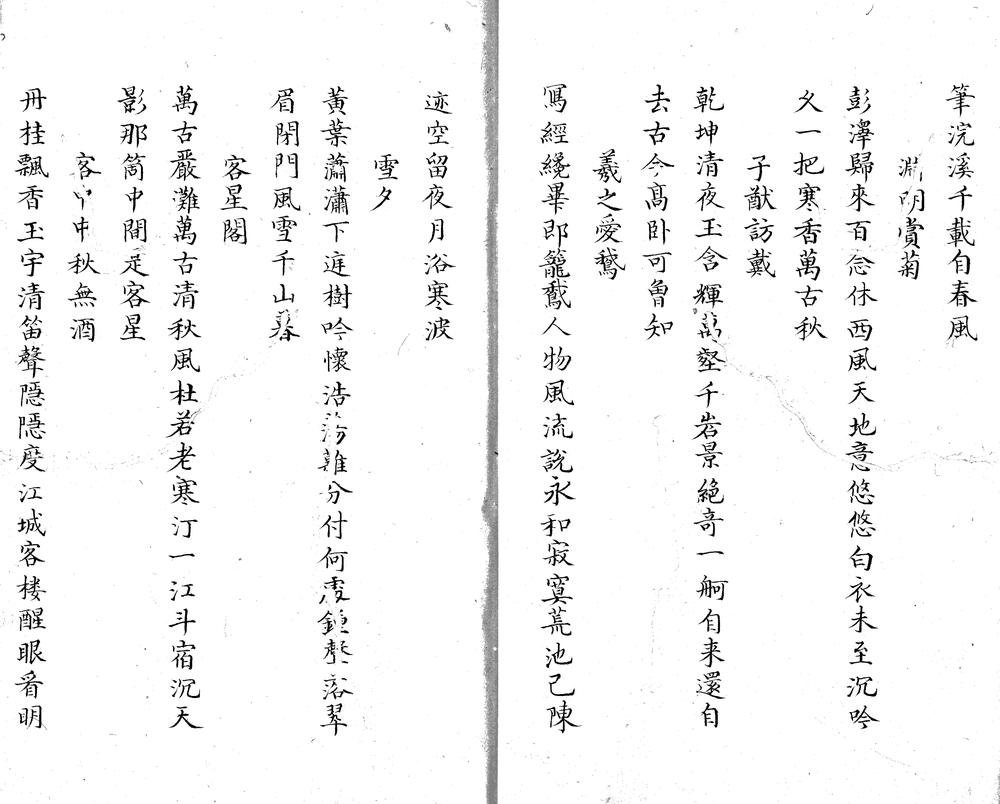 筆浣溪千載自春風
淵明賞菊
彭澤歸來百念休西風天地意悠悠白衣未至沉吟
久一把寒香萬古秋
子猷訪戴
乾坤清夜玉含輝萬壑千岩景絕奇一舸自来還自
去古今髙卧可魯知
羲之愛鵞
寫經纔畢即籠鵞人物風流說永和寂寞荒池已陳
迹空留夜月浴寒波
雪夕
黃葉蕭瀟下庭樹吟懷浩蕩難分付何處鍾聲落翠
眉閉門風雪千山暮
客星閣
萬古嚴灘萬古清秋風杜若老寒汀一江斗宿沉天
影那箇中間是客星
客中中秋無酒
丹桂飄香玉宇清笛聲隠隠度江城客楼醒眼看明